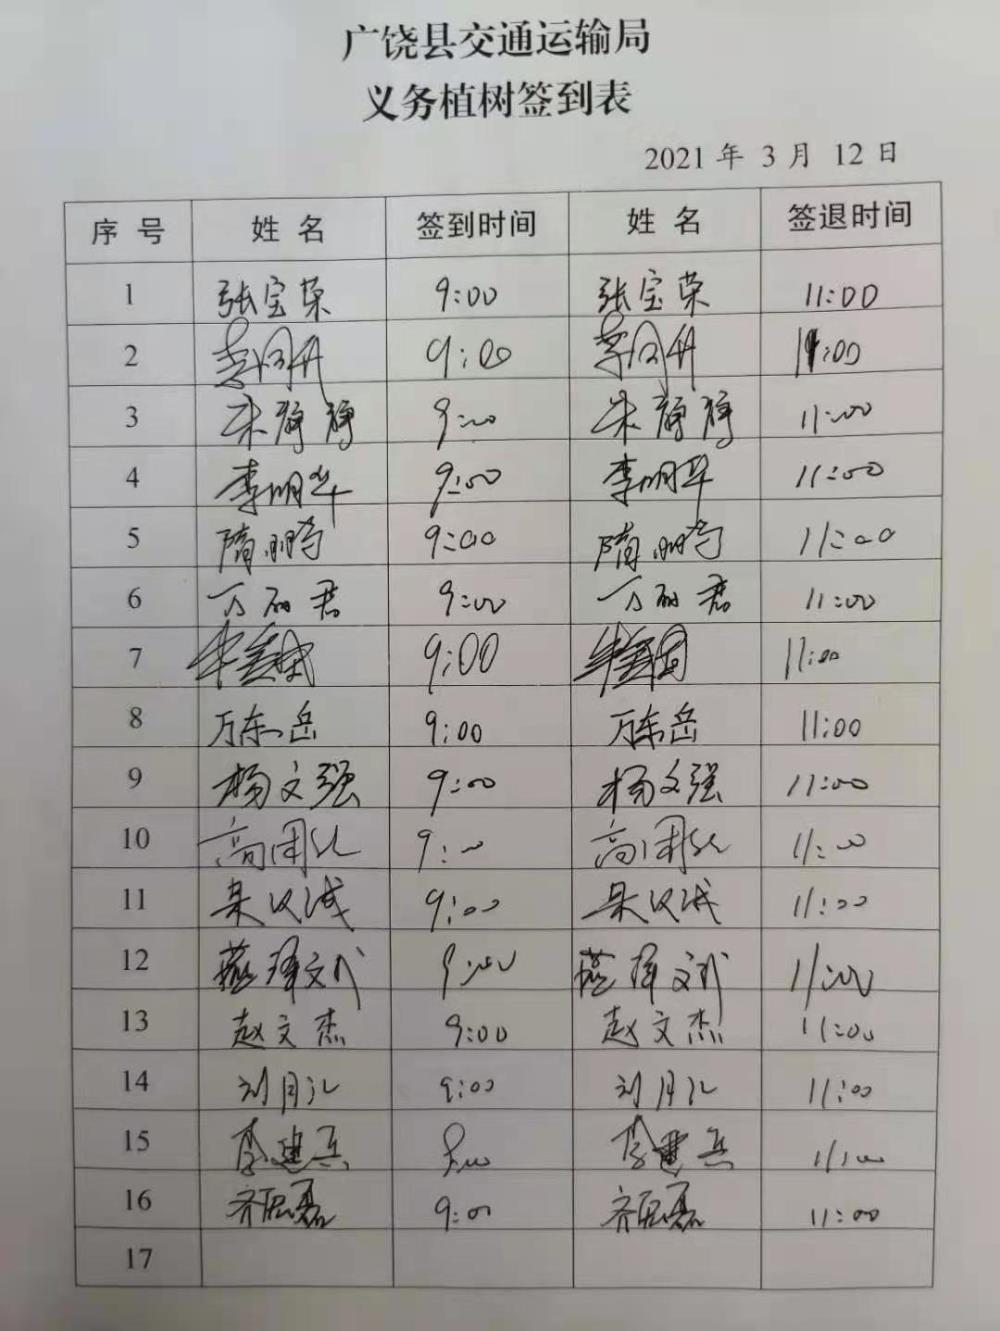 广饶县交通运输局
义务植树签到表
2021 年 3 月 12 日
序号 姓名 签到时间 姓名 签退时间
1 张宝荣 9:00 张宝荣 11:00
2 9:00 11:00
3 朱静静 9:00 朱静静 11:00
4 李明华 9:00 李明华 11:00
5 隋鹏 9:00 隋鹏 11:00
6 万丽君 9:00 万丽君 11:00
7 9:00 11:00
8 万东岳 9:00 万东岳 11:00
9 杨文强 9:00 杨文强 11:00
10 高 9:00 高 11:00
11 9:00 11:00
12 9:00 11:00
13 赵文杰 9:00 赵文杰 11:00
14 刘月汇 9:00 刘月汇 11:00
15 李建兵 9:00 李建兵 11:00
16 齐磊 9:00 齐磊 11:00
17